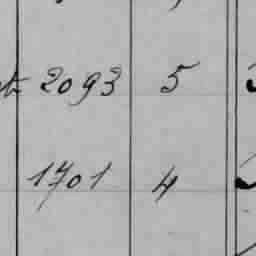 2093 5
1701 4